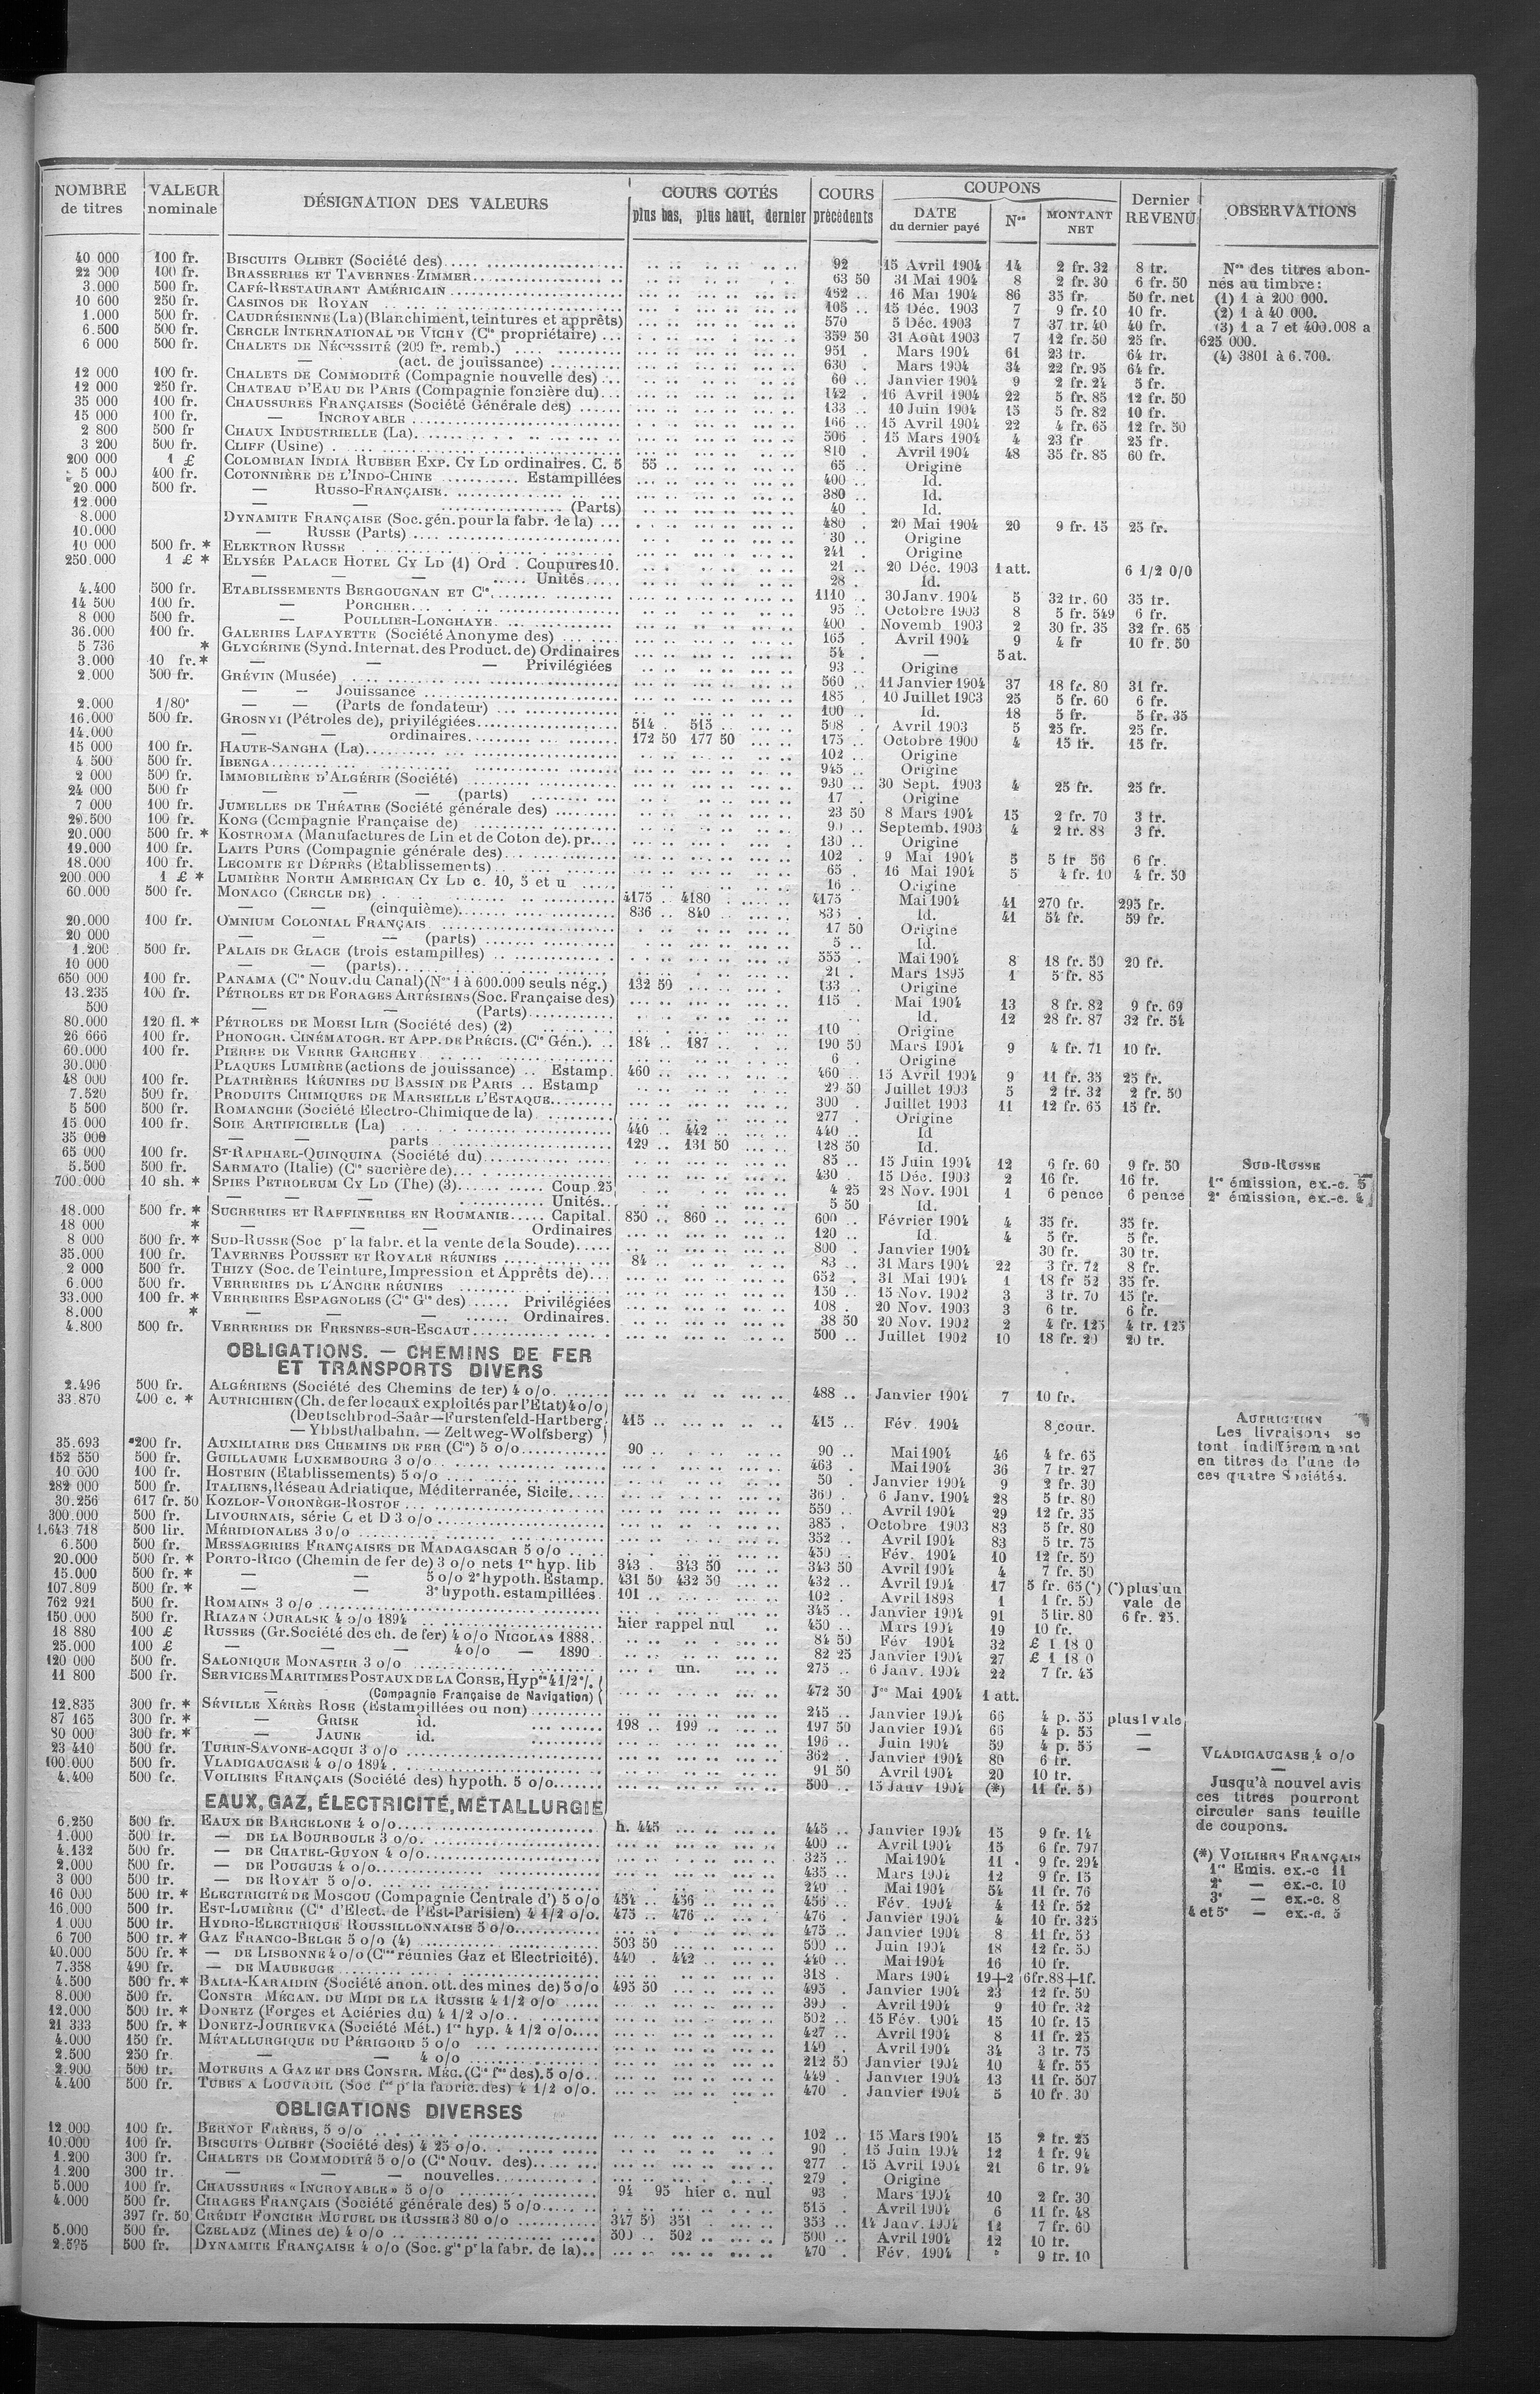 NOMBRE de titres | VALEUR nominale | DÉSIGNATION DES VALEURS | COURS COTÉS plus bas, plus haut, dernier | COURS précédents | COUPONS DATE du dernier payé | Nos | MONTANT NET | Dernier REVENU | OBSERVATIONS
40 000 100 fr. BISCUITS OLIBET (Société des) 92 15 Avril 1904 14 2 fr. 32 8 fr. Nos des titres abon-
22 000 100 fr. BRASSERIES ET TAVERNES ZIMMER 63 50 31 Mai 1904 8 2 fr. 30 6 fr. 50 nés au timbre:
3.000 500 fr. CAFÉ-RESTAURANT AMÉRICAIN 482 16 Mai 1904 86 35 fr. 50 fr. net (1) 1 à 200 000.
10 600 250 fr. CASINOS DE ROYAN 105 15 Déc. 1903 7 9 fr. 10 10 fr. (2) 1 à 40 000.
1.000 500 fr. CAUDRÉSIENNE (La) (Blanchiment, teintures et apprêts) 570 5 Déc. 1903 7 37 fr. 40 40 fr. (3) 1 a 7 et 400.008 a
6.500 500 fr. CERCLE INTERNATIONAL DE VICHY (Cie propriétaire) 359 50 31 Août 1903 7 12 fr. 50 25 fr. 625 000.
6 000 500 fr. CHALETS DE NÉCESSITÉ (209 fr. remb.) 951 Mars 1904 61 23 fr. 64 fr. (4) 3801 à 6.700.
— (act. de jouissance) 630 Mars 1904 34 22 fr. 95 64 fr.
12 000 100 fr. CHALETS DE COMMODITÉ (Compagnie nouvelle des) 60 Janvier 1904 9 2 fr. 24 5 fr.
12 000 250 fr. CHATEAU D'EAU DE PARIS (Compagnie foncière du) 142 16 Avril 1904 22 5 fr. 85 12 fr. 50
35 000 100 fr. CHAUSSURES FRANÇAISES (Société Générale des) 133 10 Juin 1904 15 5 fr. 82 10 fr.
15 000 100 fr. — INCROYABLE 166 15 Avril 1904 22 4 fr. 65 12 fr. 50
2 800 500 fr CHAUX INDUSTRIELLE (La) 506 15 Mars 1904 4 23 fr 25 fr.
3 200 500 fr. CLIFF (Usine) 810 Avril 1904 48 35 fr. 85 60 fr.
200 000 1 £ COLOMBIAN INDIA RUBBER EXP. CY LD ordinaires. C. 5 55 65 Origine
5 000 400 fr. COTONNIÈRE DE L'INDO-CHINE Estampillées 400 Id.
20.000 500 fr. — RUSSO-FRANÇAISE 380 Id.
12.000 — — (Parts) 40 Id.
8.000 DYNAMITE FRANÇAISE (Soc. gén. pour la fabr. de la) 480 20 Mai 1904 20 9 fr. 15 25 fr.
10.000 — RUSSE (Parts) 30 Origine
10 000 500 fr. * ELEKTRON RUSSE 241 Origine
250.000 1 £ * ELYSÉE PALACE HOTEL CY LD (1) Ord. Coupures 10. 21 20 Déc. 1903 1 att. 6 1/2 0/0
— — — Unités 28 Id.
4.400 500 fr. ETABLISSEMENTS BERGOUGNAN ET Cie 1110 30 Janv. 1904 5 32 fr. 60 35 fr.
14 500 100 fr. — PORCHER 95 Octobre 1903 8 5 fr. 549 6 fr.
8 000 500 fr. — POULLIER-LONGHAYE 400 Novemb 1903 2 30 fr. 35 32 fr. 65
36.000 100 fr. GALERIES LAFAYETTE (Société Anonyme des) 165 Avril 1904 9 4 fr 10 fr. 50
5 736 * GLYCÉRINE (Synd. Internat. des Product. de) Ordinaires 54 — 5 at.
3.000 10 fr. * — — — Privilégiées 93 Origine
2.000 500 fr. GRÉVIN (Musée) 560 11 Janvier 1904 37 18 fr. 80 31 fr.
— — Jouissance 185 10 Juillet 1903 25 5 fr. 60 6 fr.
2.000 1/80e — — (Parts de fondateur) 100 Id. 18 5 fr. 5 fr. 35
16.000 500 fr. GROSNYI (Pétroles de), privilégiées 514 515 508 Avril 1903 5 25 fr. 25 fr.
14.000 — — ordinaires 172 50 177 50 175 Octobre 1900 4 15 fr. 15 fr.
15 000 100 fr. HAUTE-SANGHA (La) 102 Origine
4 500 500 fr. IBENGA 945 Origine
2 000 500 fr. IMMOBILIÈRE D'ALGÉRIE (Société) 930 30 Sept. 1903 4 25 fr. 25 fr.
24 000 500 fr — — — (parts) 17 Origine
7 000 100 fr. JUMELLES DE THÉATRE (Société générale des) 23 50 8 Mars 1904 15 2 fr. 70 3 fr.
29.500 100 fr. KONG (Compagnie Française de) Septemb. 1903 4 2 fr. 88 3 fr.
20.000 500 fr. * KOSTROMA (Manufactures de Lin et de Coton de). pr. 130 Origine
19.000 100 fr. LAITS PURS (Compagnie générale des) 102 9 Mai 1904 5 5 fr 56 6 fr.
18.000 100 fr. LECOMTE ET DÉPRÈS (Établissements) 65 16 Mai 1904 5 4 fr. 10 4 fr. 50
200.000 1 £ * LUMIÈRE NORTH AMERICAN CY LD c. 10, 5 et u 16 Origine
60.000 500 fr. MONACO (CERCLE DE) 4175 4180 4175 Mai 1904 41 270 fr. 295 fr.
— — (cinquième) 836 840 833 Id. 41 54 fr. 59 fr.
20.000 100 fr. OMNIUM COLONIAL FRANÇAIS 17 50 Origine
20 000 — — — (parts) 5 Id.
1.200 500 fr. PALAIS DE GLACE (trois estampilles) 555 Mai 1904 8 18 fr. 50 20 fr.
10 000 — — (parts) 21 Mars 1895 1 5 fr. 85
650 000 100 fr. PANAMA (Cie Nouv. du Canal) (Nos 1 à 600.000 seuls nég.) 132 50 133 Origine
13.235 100 fr. PÉTROLES ET DE FORAGES ARTÉSIENS (Soc. Française des) 115 Mai 1904 13 8 fr. 82 9 fr. 69
500 — — (Parts) Id. 12 28 fr. 87 32 fr. 54
80.000 120 fl. * PÉTROLES DE MOESI ILIR (Société des) (2) 110 Origine
26 666 100 fr. PHONOGR. CINÉMATOGR. ET APP. DE PRÉCIS. (Cie Gén.) 184 187 190 50 Mars 1904 9 4 fr. 71 10 fr.
60.000 100 fr. PIERRE DE VERRE GARCHEY 6 Origine
30.000 PLAQUES LUMIÈRE (actions de jouissance) Estamp. 460 460 15 Avril 1904 9 11 fr. 35 25 fr.
48 000 100 fr. PLATRIÈRES RÉUNIES DU BASSIN DE PARIS Estamp 29 50 Juillet 1903 5 2 fr. 32 2 fr. 50
7.520 500 fr. PRODUITS CHIMIQUES DE MARSEILLE L'ESTAQUE 300 Juillet 1903 11 12 fr. 65 15 fr.
5 500 500 fr. ROMANCHE (Société Electro-Chimique de la) 277 Origine
15.000 100 fr. SOIE ARTIFICIELLE (La) 440 442 440 Id
35 000 — — parts 129 131 50 128 50 Id.
65 000 100 fr. ST-RAPHAEL-QUINQUINA (Société du) 85 15 Juin 1904 12 6 fr. 60 9 fr. 50 SUD-RUSSE
5.500 500 fr. SARMATO (Italie) (Cie sucrière de) 430 15 Déc. 1903 2 16 fr. 16 fr. 1re émission, ex.-c. 5
700.000 10 sh. * SPIES PETROLEUM CY LD (The) (3) Coup 25 4 25 28 Nov. 1901 1 6 pence 6 pence 2e émission, ex.-c. 4
— — — Unités 5 50 Id.
18.000 500 fr. * SUCRERIES ET RAFFINERIES EN ROUMANIE Capital 850 860 600 Février 1904 4 35 fr. 35 fr.
18 000 * — — — Ordinaires 120 Id. 4 5 fr. 5 fr.
8 000 500 fr. * SUD-RUSSE (Soc pr la fabr. et la vente de la Soude) 800 Janvier 1904 30 fr. 30 fr.
35.000 100 fr. TAVERNES POUSSET ET ROYALE RÉUNIES 84 83 31 Mars 1904 22 3 fr. 72 8 fr.
2 000 500 fr. THIZY (Soc. de Teinture, Impression et Apprêts de) 652 31 Mai 1904 1 18 fr 52 35 fr.
6.000 500 fr. VERRERIES DE L'ANCRE RÉUNIES 150 15 Nov. 1902 3 3 fr. 70 15 fr.
33.000 100 fr. * VERRERIES ESPAGNOLES (Cie Gle des) Privilégiées 108 20 Nov. 1903 3 6 fr. 6 fr.
8.000 * — — — Ordinaires. 38 50 20 Nov. 1902 2 4 fr. 125 4 fr. 125
4.800 500 fr. VERRERIES DE FRESNES-SUR-ESCAUT 500 Juillet 1902 10 18 fr. 20 20 fr.
OBLIGATIONS. — CHEMINS DE FER
ET TRANSPORTS DIVERS
2.496 500 fr. ALGÉRIENS (Société des Chemins de fer) 4 o/o 488 Janvier 1904 7 10 fr.
33.870 400 c. * AUTRICHIEN (Ch. de fer locaux exploités par l'Etat) 4 o/o
(Deutschbrod-Saâr—Furstenfeld-Hartberg 415 415 Fév. 1904 8 cour. AUTRICHIEN
— Ybbsthalbahn. — Zeltweg-Wolfsberg) Les livraisons se
35.693 200 fr. AUXILIAIRE DES CHEMINS DE FER (Cie) 5 o/o 90 90 Mai 1904 46 4 fr. 65 font indifféremment
152 550 500 fr. GUILLAUME LUXEMBOURG 3 o/o 463 Mai 1904 36 7 fr. 27 en titres de l'une de
10 000 100 fr. HOSTEIN (Etablissements) 5 o/o 50 Janvier 1904 9 2 fr. 30 ces quatre Sociétés.
282 000 500 fr. ITALIENS, Réseau Adriatique, Méditerranée, Sicile 360 6 Janv. 1904 28 5 fr. 80
30.256 617 fr. 50 KOZLOF-VORONÈGE-ROSTOF 550 Avril 1904 29 12 fr. 35
300.000 500 fr. LIVOURNAIS, série C et D 3 o/o 385 Octobre 1903 83 5 fr. 80
1.643 718 500 lir. MÉRIDIONALES 3 o/o 352 Avril 1904 83 5 fr. 75
6.500 500 fr. MESSAGERIES FRANÇAISES DE MADAGASCAR 5 o/o 450 Fév. 1904 10 12 fr. 50
20.000 500 fr. * PORTO-RICO (Chemin de fer de) 3 o/o nets 1re hyp. lib 343 343 50 343 50 Avril 1904 4 7 fr. 50
15.000 500 fr. * — — 5 o/o 2e hypoth. Estamp. 431 50 432 50 432 Avril 1904 17 5 fr. 65 (*) (*) plus un
107.809 500 fr. * — — 3e hypoth. estampillées 101 102 Avril 1898 1 1 fr. 50 vale de
762 921 500 fr. ROMAINS 3 o/o 345 Janvier 1904 91 5 lir. 80 6 fr. 25.
150.000 500 fr. RIAZAN OURALSK 4 o/o 1894 hier rappel nul 450 Mars 1904 19 10 fr.
18 880 100 £ RUSSES (Gr. Société des ch. de fer) 4 o/o NICOLAS 1888 84 50 Fév. 1904 32 £ 1 18 0
25.000 100 £ — — — 4 o/o — 1890 82 25 Janvier 1904 27 £ 1 18 0
120 000 500 fr. SALONIQUE MONASTIR 3 o/o un. 275 6 Janv. 1904 22 7 fr. 45
11 800 500 fr. SERVICES MARITIMES POSTAUX DE LA CORSE, Hypre 4 1/2 %
— (Compagnie Française de Navigation) 472 50 Jce Mai 1904 1 att.
12.835 300 fr. * SÉVILLE XÉRÈS ROSE (Estampillées ou non) 245 Janvier 1904 66 4 p. 55 plus 1 vale
87 165 300 fr. * — GRISE id. 198 199 197 50 Janvier 1904 66 4 p. 55 —
80 000 300 fr. * — JAUNE id. 196 Juin 1904 59 4 p. 55 —
23 410 500 fr. TURIN-SAVONE-ACQUI 3 o/o 362 Janvier 1904 80 6 fr. VLADICAUCASE 4 o/o
100.000 500 fr. VLADICAUCASE 4 o/o 1894 91 50 Avril 1904 20 10 fr. —
4.400 500 fr. VOILIERS FRANÇAIS (Société des) hypoth. 5 o/o 500 15 Janv 1904 (*) 11 fr. 50 Jusqu'à nouvel avis
EAUX, GAZ, ÉLECTRICITÉ, MÉTALLURGIE ces titres pourront
circuler sans feuille
6.250 500 fr. EAUX DE BARCELONE 4 o/o h. 445 445 Janvier 1904 15 9 fr. 14 de coupons.
1.000 500 fr. — DE LA BOURBOULE 3 o/o 400 Avril 1904 15 6 fr. 797
4.132 500 fr. — DE CHATEL-GUYON 4 o/o 325 Mai 1904 11 9 fr. 294 (*) VOILIERS FRANÇAIS
2.000 500 fr. — DE POUGUES 4 o/o 435 Mars 1904 12 9 fr. 15 1re Emis. ex.-c 11
3 000 500 fr. — DE ROYAT 5 o/o 240 Mai 1904 54 11 fr. 76 2e — ex.-c. 10
16 000 500 fr. * ELECTRICITÉ DE MOSCOU (Compagnie Centrale d') 5 o/o 454 456 456 Fév. 1904 4 11 fr. 52 3e — ex.-c. 8
16.000 500 fr. EST-LUMIÈRE (Cie d'Elect. de l'Est-Parisien) 4 1/2 o/o. 475 476 476 Janvier 1904 4 10 fr. 325 4 et 5e — ex.-c. 5
1.000 500 fr. HYDRO-ELECTRIQUE ROUSSILLONNAISE 5 o/o 475 Janvier 1904 8 11 fr. 53
6 700 500 fr. * GAZ FRANCO-BELGE 5 o/o (4) 503 50 500 Juin 1904 18 12 fr. 50
40.000 500 fr. * — DE LISBONNE 4 o/o (Cies réunies Gaz et Electricité). 440 442 440 Mai 1904 16 10 fr.
7.358 490 fr. — DE MAUBEUGE 318 Mars 1904 19+2 6 fr. 88 + 1 f.
4.500 500 fr. * BALIA-KARAIDIN (Société anon. ott. des mines de) 5 o/o 495 50 495 Janvier 1904 23 12 fr. 50
8.000 500 fr. CONSTR MÉCAN. DU MIDI DE LA RUSSIE 4 1/2 o/o 390 Avril 1904 9 10 fr. 32
12.000 500 fr. * DONETZ (Forges et Aciéries du) 4 1/2 o/o 502 15 Fév. 1904 15 10 fr. 15
21 333 500 fr. * DONETZ-JOURIEVKA (Société Mét.) 1re hyp. 4 1/2 o/o 427 Avril 1904 8 11 fr. 25
4.000 150 fr. MÉTALLURGIQUE DU PÉRIGORD 5 o/o 140 Avril 1904 34 3 fr. 75
2.500 250 fr. — — 4 o/o 212 50 Janvier 1904 10 4 fr. 55
2.900 500 fr. MOTEURS A GAZ ET DES CONSTR. MÉC. (Cie fse des). 5 o/o 449 Janvier 1904 13 11 fr. 507
4.400 500 fr. TUBES A LOUVROIL (Soc fse pr la fabric. des) 4 1/2 o/o. 470 Janvier 1904 5 10 fr. 30
OBLIGATIONS DIVERSES
12.000 100 fr. BERNOT FRÈRES, 5 o/o 102 15 Mars 1904 15 2 fr. 25
10.000 100 fr. BISCUITS OLIBET (Société des) 4 25 o/o 90 15 Juin 1904 12 1 fr. 94
1.200 300 fr. CHALETS DE COMMODITÉ 5 o/o (Cie Nouv. des) 277 15 Avril 1904 21 6 fr. 94
1.200 300 fr. — — — nouvelles 279 Origine
5.000 100 fr. CHAUSSURES « INCROYABLE » 5 o/o 94 95 hier c. nul 93 Mars 1904 10 2 fr. 30
4.000 500 fr. CIRAGES FRANÇAIS (Société générale des) 5 o/o 515 Avril 1904 6 11 fr. 48
397 fr. 50 CRÉDIT FONCIER MUTUEL DE RUSSIE 3 80 o/o 347 50 351 353 14 Janv. 1904 12 7 fr. 60
5.000 500 fr. CZELADZ (Mines de) 4 o/o 500 502 500 Avril 1904 12 10 fr.
2.595 500 fr. DYNAMITE FRANÇAISE 4 o/o (Soc. gle pr la fabr. de la) 470 Fév. 1904 9 fr. 10